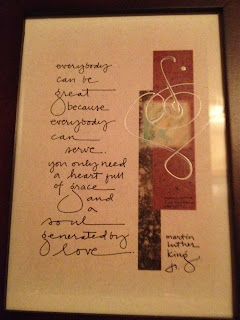 everybody
can be
great
because
everybody
can
serve.
you only need
a heart full
of grace
and
a
soul
generated by
love.
martin
luther
king
jr.